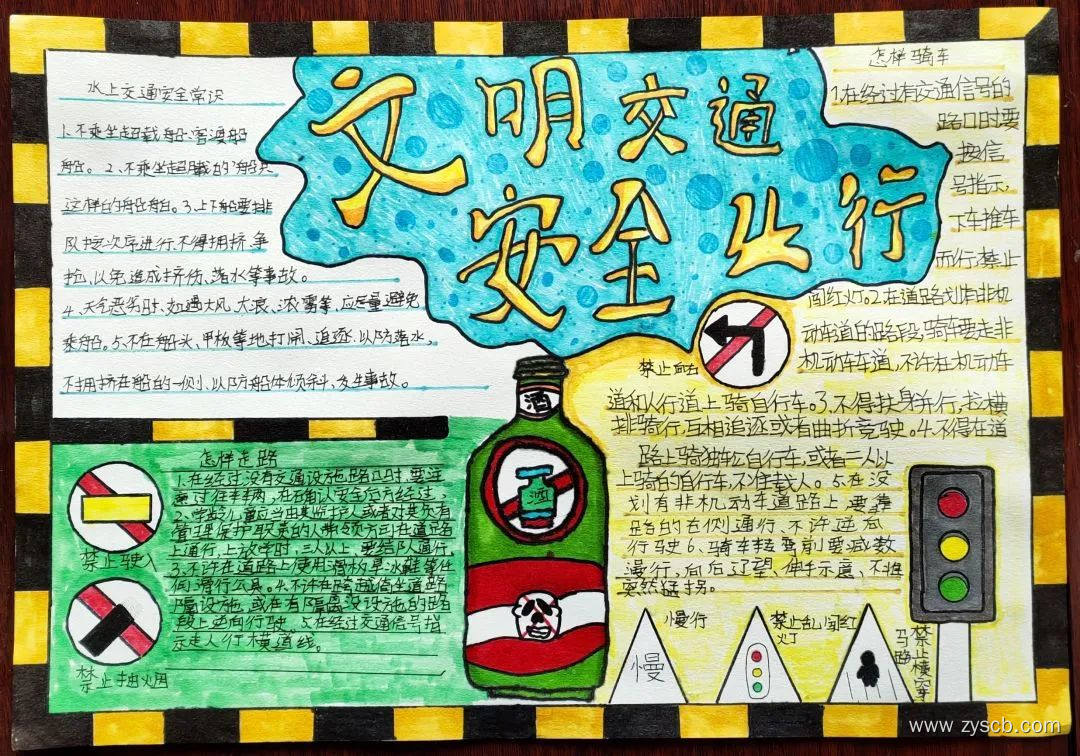 文明交通
安全出行
水上交通安全常识
1.不乘坐超载船、客渡船
船。2、不乘坐超载的船只
这样的船舶。3.上下船要排
队按次序进行,不得拥挤、争
抢,以免造成挤伤、落水等事故。
4、天气恶劣时,如遇大风、大浪、浓雾等,应尽量避免
乘船。5、不在船头、甲板等地打闹、追逐,以防落水,
不拥挤在船的一侧,以防船体倾斜,发生事故。
怎样骑车
1.在经过有交通信号的
路口时要
按信
号指示,
下车推车
而行,禁止
闯红灯。2.在道路划有非机
动车道的路段,骑车要走非
机动车车道,不许在机动车
道和人行道上骑自行车。3.不得扶身并行,拉横
排骑行,互相追逐或者曲折竞驶。4.不得在道
路上骑独轮自行车,或者二人以
上骑的自行车,不准载人。5.在没
划有非机动车道路上,要靠
路的右侧通行,不许逆向
行驶6、骑车转弯前要减数
慢行,向后过望、伸手示意、不准
突然猛拐。
禁止向右
酒
酒
怎样走路
1.在经过没有交通设施路口时,要注
意过往车辆,在确认安全后方经过。
2、学龄儿童应当由其监护人或者对其负有
管理保护职责的人带领方可在道路
上通行,上放学时,三人以上,要结队通行。
3、不许在道路上使用滑板旱冰鞋等任
何滑行公具。4.不许在跨越倚坐道路
隔设施,或在有隔离设设施的路
段上逆向行驶。5.在经过交通信号指
示走人行横道线。
禁止驶入
禁止抽烟
慢行
慢
禁止乱闯红
灯
禁止横穿
马路
www.zyscb.com